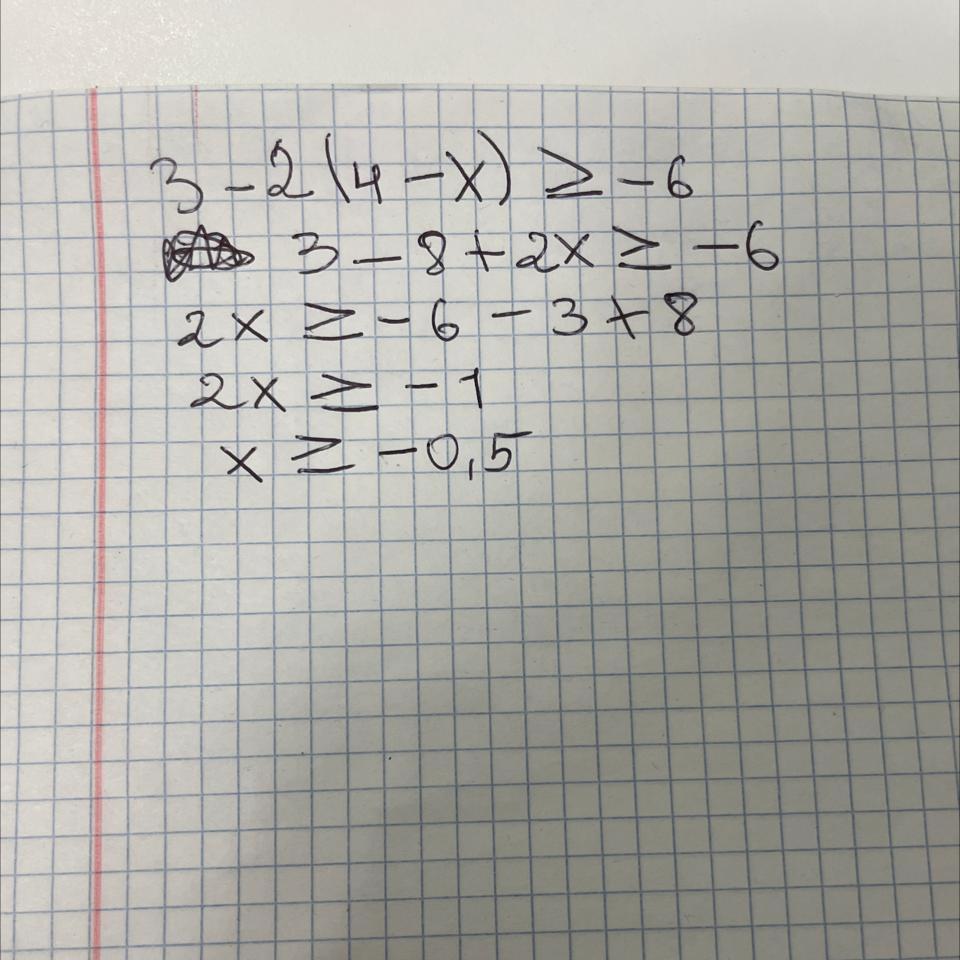 3 - 2(4 - x) ≥ -6
3 - 8 + 2x ≥ -6
2x ≥ -6 - 3 + 8
2x ≥ -1
x ≥ -0,5